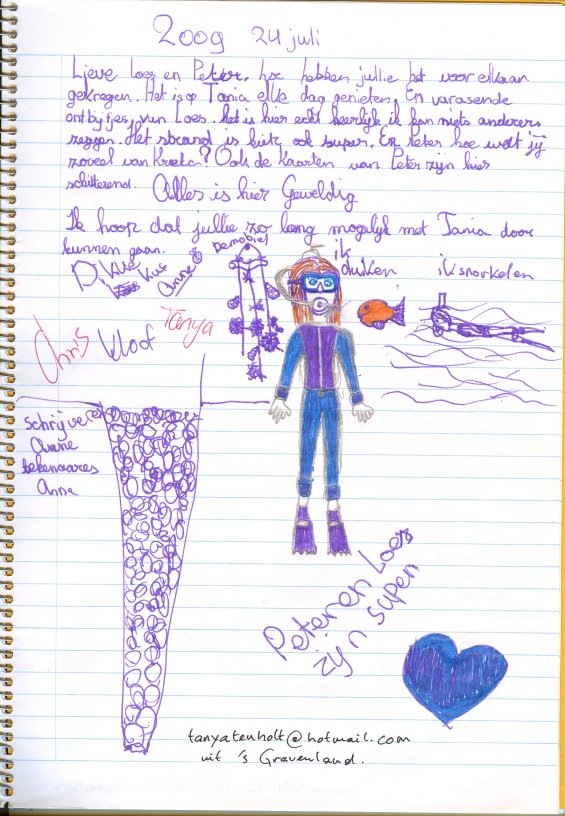 2009 24 juli
Lieve Loes en Peter, hoe hebben jullie het voor elkaar
gekregen. Het is op Tania elke dag genieten. En varasende
ontbytjes van Loes. het is hier echt heerlijk ik kan niets anderers
zeggen. Het strand is hier ook super. En Peter hoe welt jij
zoveel van Kreeka? Ook de Kaarten van Peter zijn hier
schitterend. Alles is hier Geweldig
Ik hoop dat jullie zo lang mogelyk met Tania door
kunnen gaan.
kus
Anne
ik
duiken
ik snorkelen
Chris
kloof
Tanya
schrijver
Anne
tekenaares
Anne
Peter en Loes
zijn super
tanyatenholt@hotmail.com
uit 's Gravenland.